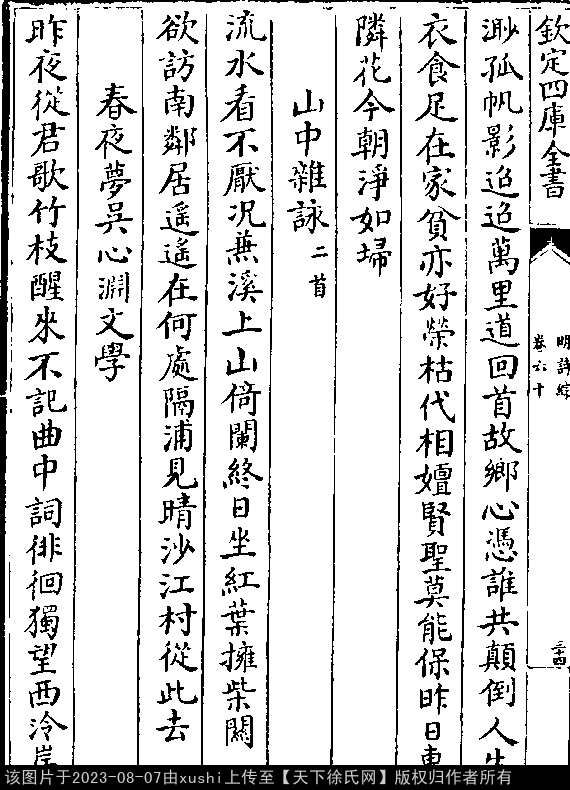 欽定四庫全書
明詩綜
卷六十
三十四
渺孤帆影迢迢萬里道回首故鄉心憑誰共顛倒人生
衣食足在家貧亦好榮枯代相嬗賢聖莫能保昨日東
隣花今朝淨如埽
山中雜詠二首
流水看不厭况蒹溪上山倚闌終日坐紅葉擁柴關
欲訪南鄰居遥遥在何處隔浦見晴沙江村從此去
春夜夢吳心淵文學
昨夜從君歌竹枝醒來不記曲中詞徘徊獨望西泠岸
该图片于2023-08-07由xushi上传至【天下徐氏网】版权归作者所有